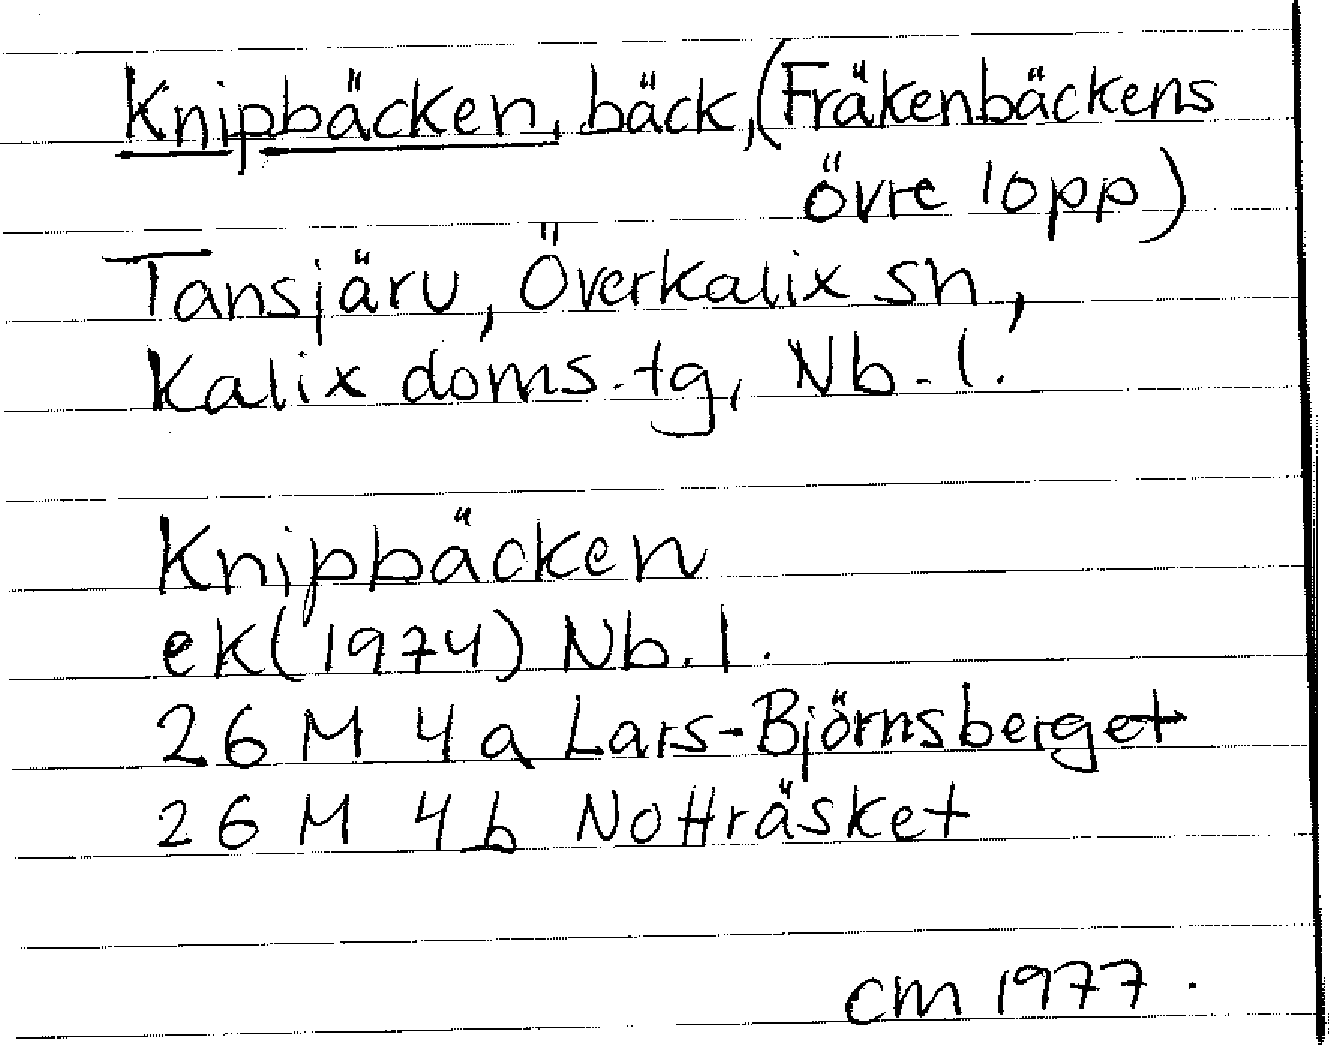 Knipbäcken, bäck, (Fräkenbäckens
övre lopp)
Tansjärv, Överkalix sn,
Kalix doms.tg, Nb.l.
Knipbäcken
ek (1974) Nb.l.
26 M 4a Lars-Björnsberget
26 M 4b Nottråsket
cm 1977.